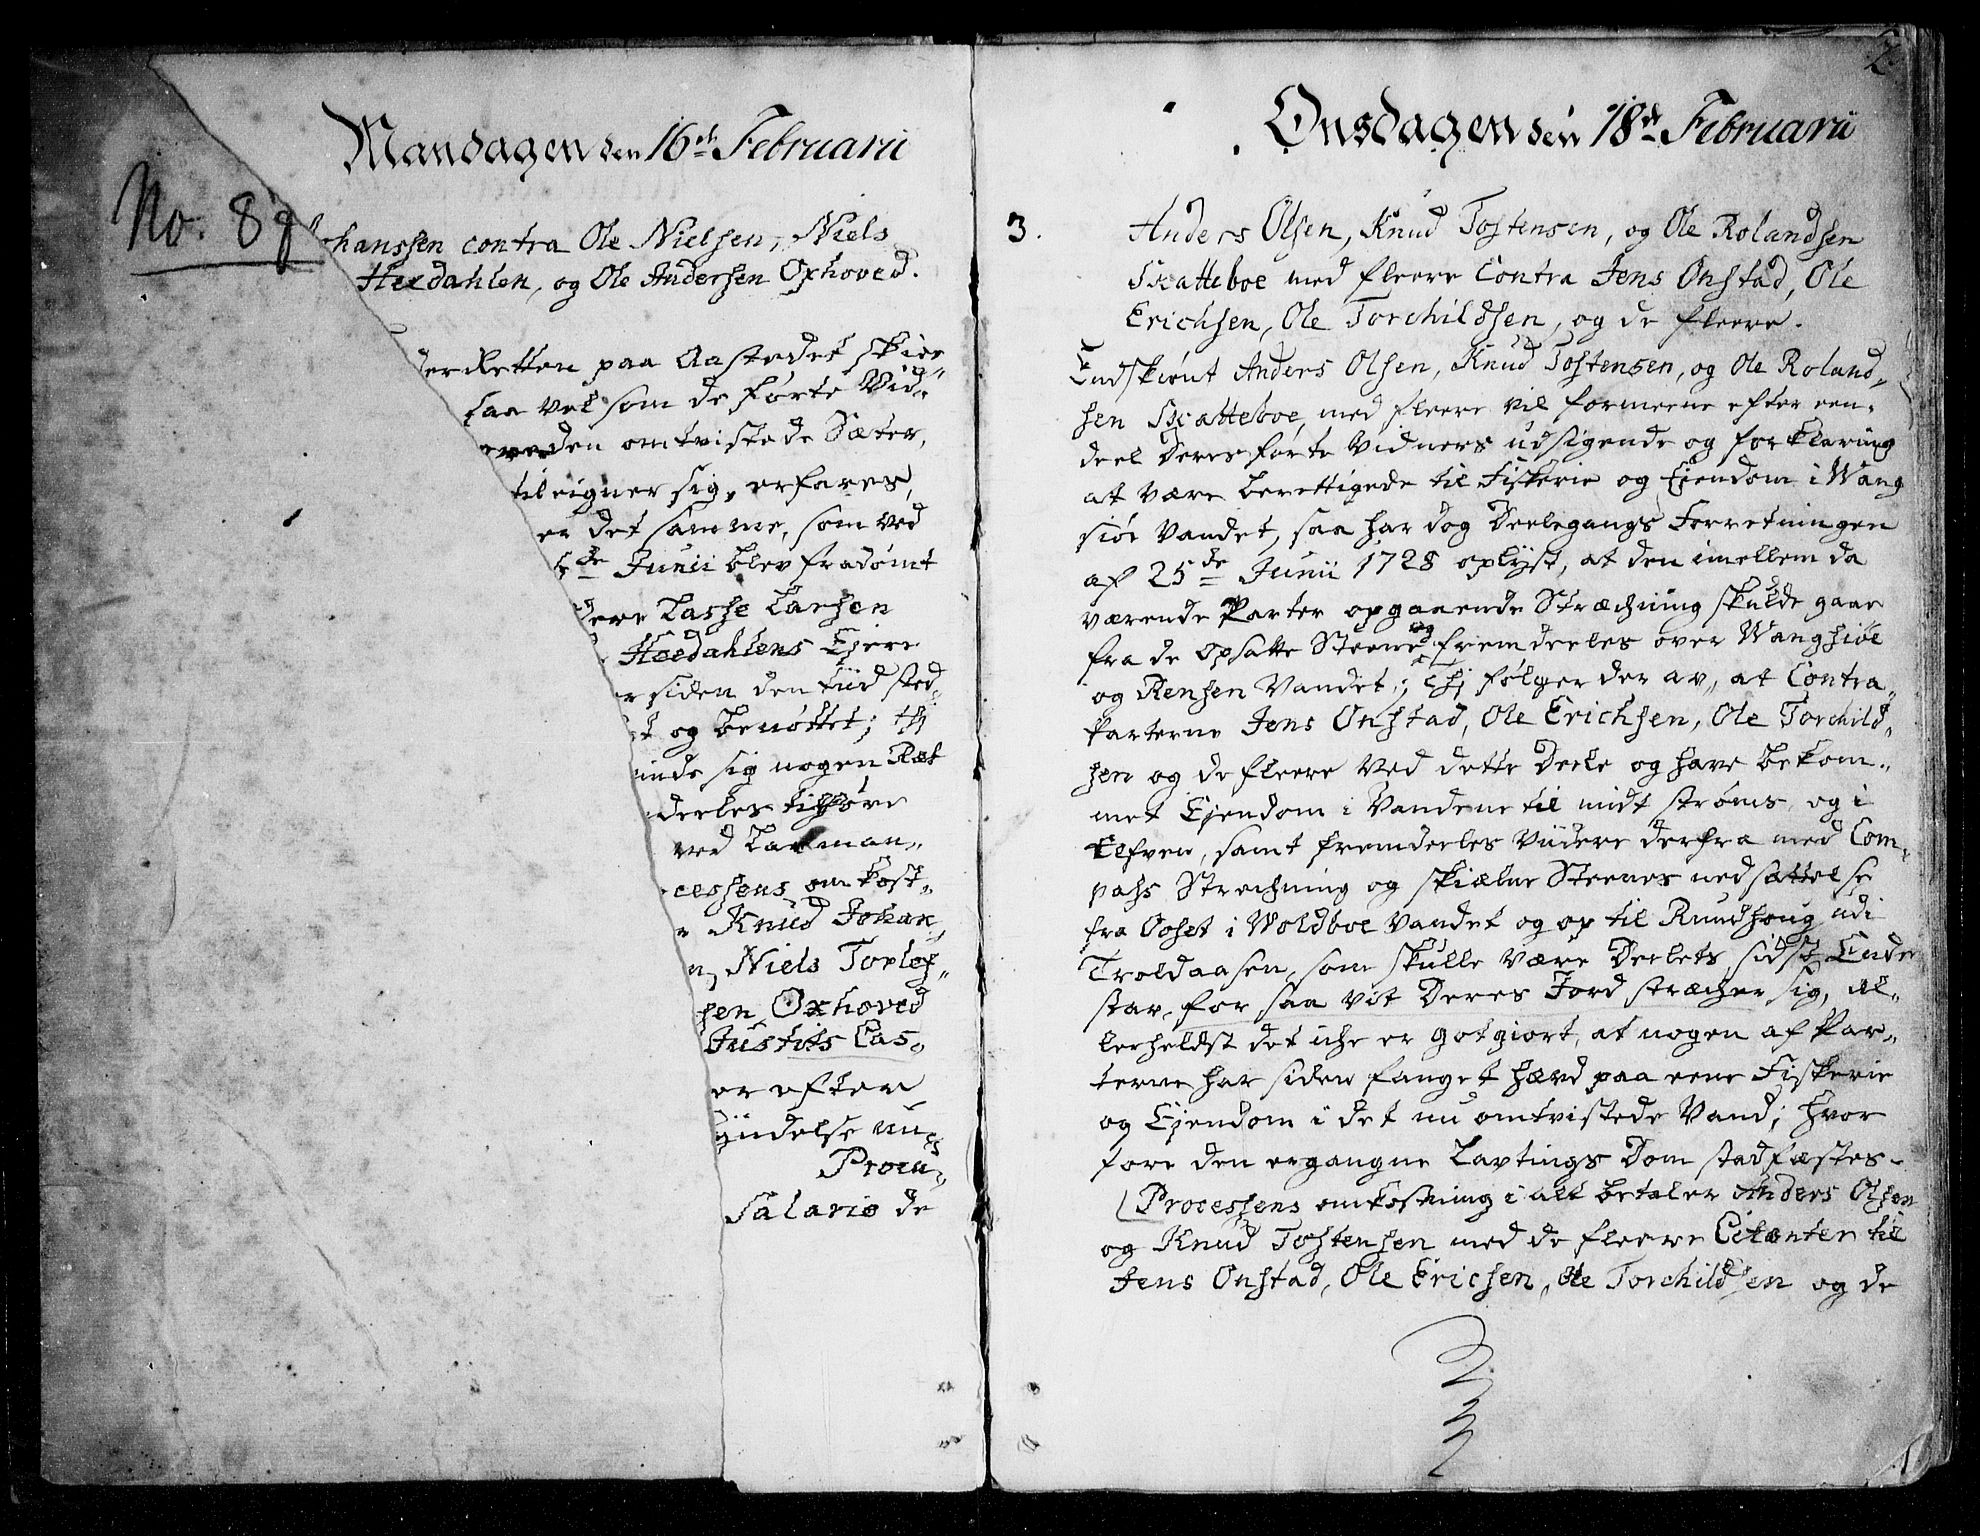 No. 8
Mandagen den 16de Februarii
ohanssen contra Ole Nielsen, Niels
Hexdahlen, og Ole Andersen Oxhoved.
Retten paa Aastedet skier„
saa vel som de førte Vid„
den omtvistede Sæter,
tileigner sig, erfares,
er det samme, som ved
5de Junii blev fradømt
Lasse Larsen
Hexdahlens Ejere
siden den tiid sted„
t og benøttet; thj
inde sig nogen Ræt
deeles tilhøre
ved Laxman„
cessens omkost„
Knud Johan„
n, Niels Torlef„
sen Oxhoved
Justits Cas„
er efter
Procu„
Salario de
2
Onsdagen den 18de Februarii
3. Anders Olsen, Knud Tostensen, og Ole Rolandsen
Skatteboe med fleere Contra Jens Onstad, Ole
Erichsen, Ole Torchildsen, og de fleere.
Endskiønt Anders Olsen, Knud Tostensen, og Ole Roland„
sen Skatteboe, med fleere vil formeene efter een„
deel Deres førte Vidners udsigende og forklaring
at være berettigede til Fiskerie og Ejendom i Wang
siøe Vandet, saa har dog Deelegangs Forretningen
af 25de Junii 1728 oplyst, at den imellem da
værende Parter opgaaende Strækning skulde gaae
fra de opsatte Steene og fremdeeles over Wangsiøe
og Rensen Vandet; thj følger der av, at Contra„
parterne Jens Onstad, Ole Erichsen, Ole Torchild„
sen og de fleere ved dette Deele og have bekom„
met Ejendom i Vandene til midt strøms, og i
Elfven, samt fremdeeles viidere derfra med Com„
pass Strechning og skielne Steenes nedsættelse
fra Ooset i Woldboe Vandet og op til Ruudhoug udi
Troldaasen, som skulle være Deelets sidste Ende
stav, for saa vit Deres Jord strækker sig, al„
lerheldst det iche er gotgiort, at nogen af Par„
terne har siden fanget hævd paa eene Fiskerie
og Ejendom i det nu omtvistede Vand; hvor
fore den ergangne Lavtings Dom stadfæstes.
Processens omkostning i alt betaler Anders Olsen
og Knud Tostensen med de fleere Citanter til
Jens Onstad, Ole Ericsen, Ole Torchildsen og de